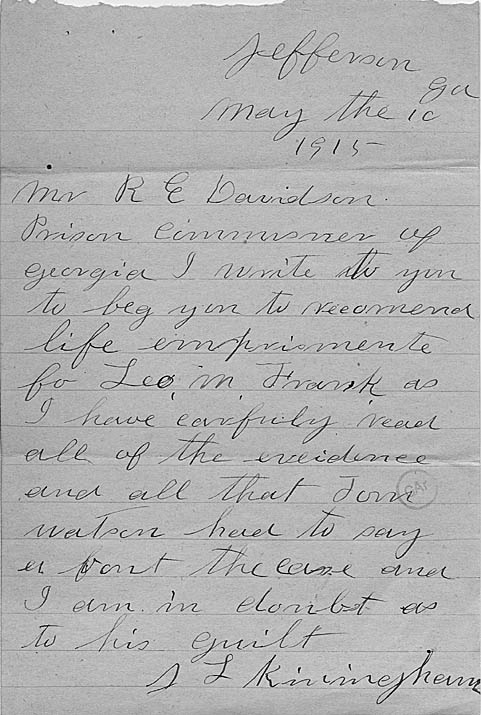 Jefferson
ga
May the 10
1915
Mr R E Davidson.
Prison Commisner of
georgia I write to you
to beg you to recomend
life emprismente
fo Leo M Frank as
I have carfuly read
all of the eveidence
and all that Tom
watson had to say
a bout the case and
I am in doubt as
to his guilt
L Kiningham